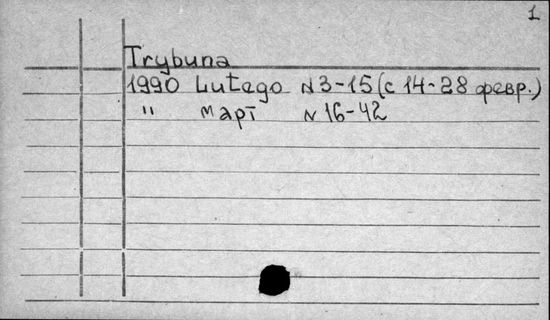 1
Trybuna
1990 Lutego N 3-15 (с 14-28 февр.)
" март N 16-42